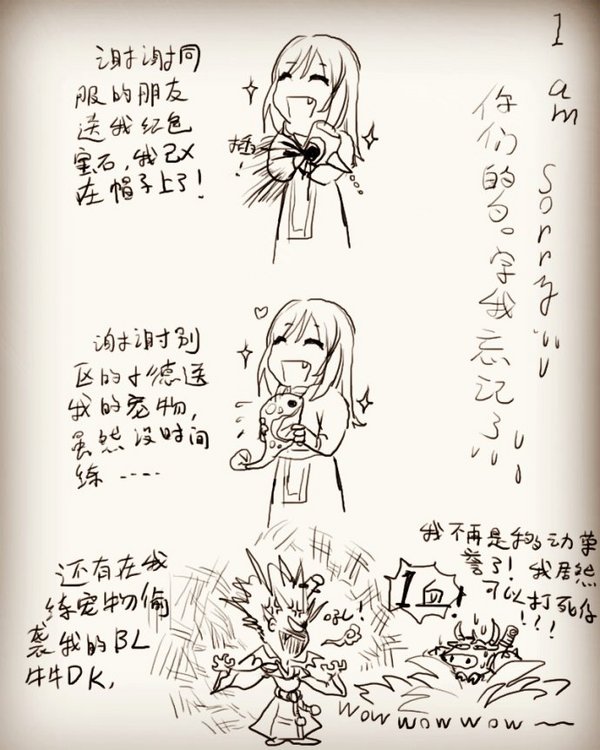 谢谢同
服的朋友
送我红色
宝石，我已X
在帽子上了！
插
！
I am sorry
你们的名字我忘记了
谢谢别
区的小德送
我的宠物，
虽然没时间
练……
还有在我
练宠物偷
袭我的BL
牛牛DK，
1血！
我不再是移动尊
誉了！我居然
可以打死你
！！！
wow wow wow ~